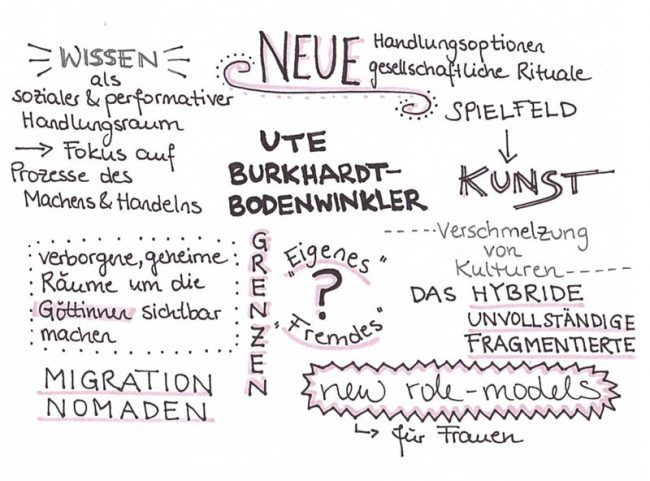 WISSEN
als
sozialer & performativer
Handlungsraum
→ Fokus auf
Prozesse des
Machens & Handelns
NEUE Handlungsoptionen
gesellschaftliche Rituale
SPIELFELD
↓
KUNST
UTE
BURKHARDT-
BODENWINKLER
-----Verschmelzung
von
Kulturen-----
verborgene, geheime
Räume um die
Göttinnen sichtbar
machen
GRENZEN
"Eigenes"
?
"Fremdes"
DAS HYBRIDE
UNVOLLSTÄNDIGE
FRAGMENTIERTE
MIGRATION
NOMADEN
new role-models
↳ für Frauen